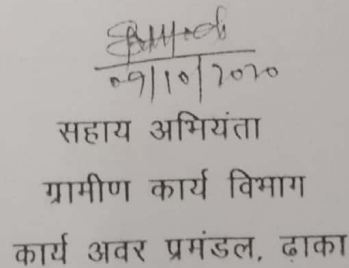 09/10/2020
सहाय अभियंता
ग्रामीण कार्य विभाग
कार्य अवर प्रमंडल, ढ़ाका